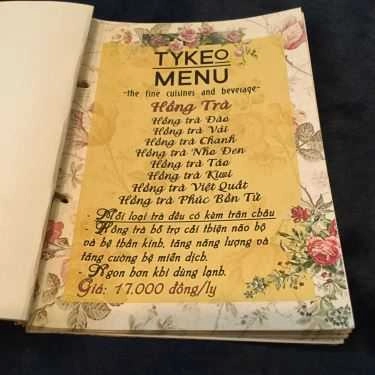 TYKEO
MENU
-the fine cuisines and beverage-
Hồng Trà
Hồng trà Đào
Hồng trà Vải
Hồng trà Chanh
Hồng trà Nho Đen
Hồng trà Táo
Hồng trà Kiwi
Hồng trà Việt Quất
Hồng trà Phúc Bồn Tử
- Mỗi loại trà đều có kèm trân châu
- Hồng trà hỗ trợ cải thiện não bộ
và hệ thần kinh, tăng năng lượng và
tăng cường hệ miễn dịch.
- Ngon hơn khi dùng lạnh.
Giá: 17.000 đồng/ly